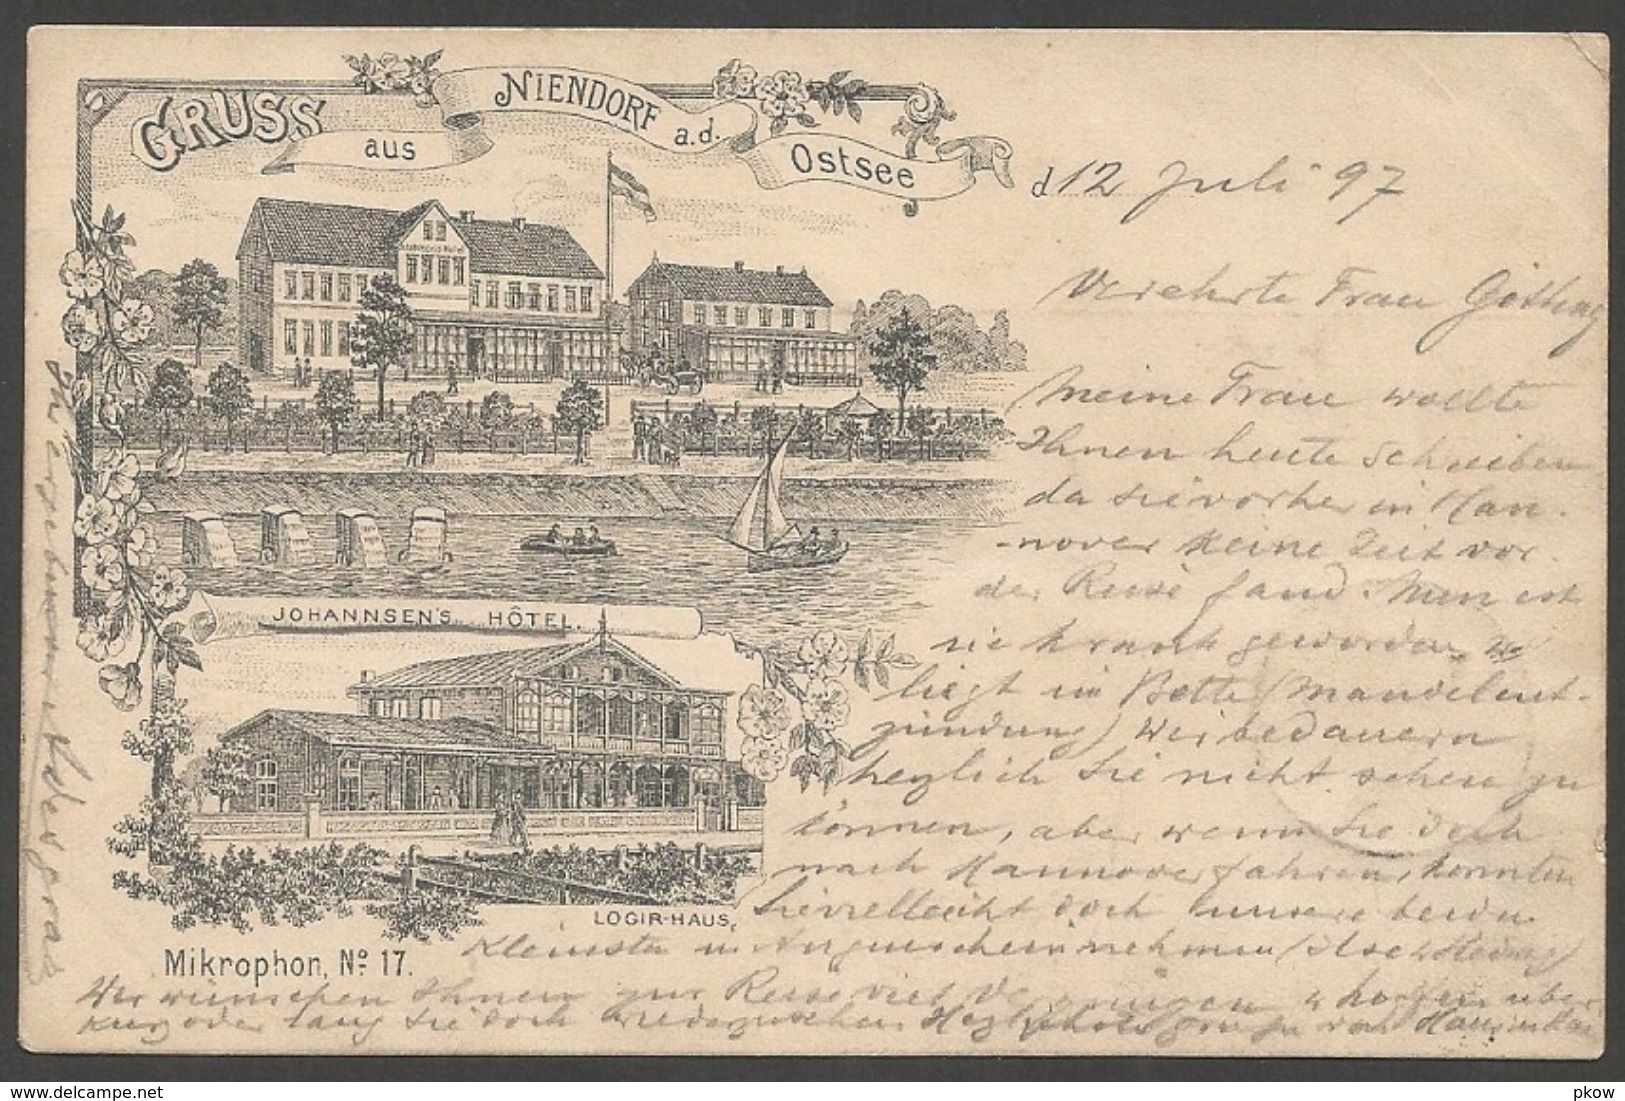 GRUSS
aus
NIENDORF a.d.
Ostsee
Johannsen's Hotel
JOHANNSEN'S HÔTEL.
LOGIR-HAUS.
Mikrophon, No 17.
d 12 Juli 97
Verehrte Frau
Meine Frau wollte
Ihnen heute schreiben
da sie vorher in Han-
-nover keine Zeit vor
der Reise fand. Nun ist
sie krank geworden u
liegt im Bette (Mandelent-
zündung) Wir bedauern
herzlich Sie nicht sehen zu
können, aber wenn Sie doch
nach Hannover fahren, könnten
Sie vielleicht doch unsere beiden
Kleinsten in Augenschein nehmen (Ilse u Hedwig)
Wir wünschen Ihnen zur Reise viel Vergnügen u hoffen über
kurz oder lang Sie doch wiederzusehen Herzliche
Ihr ergebener
pkow